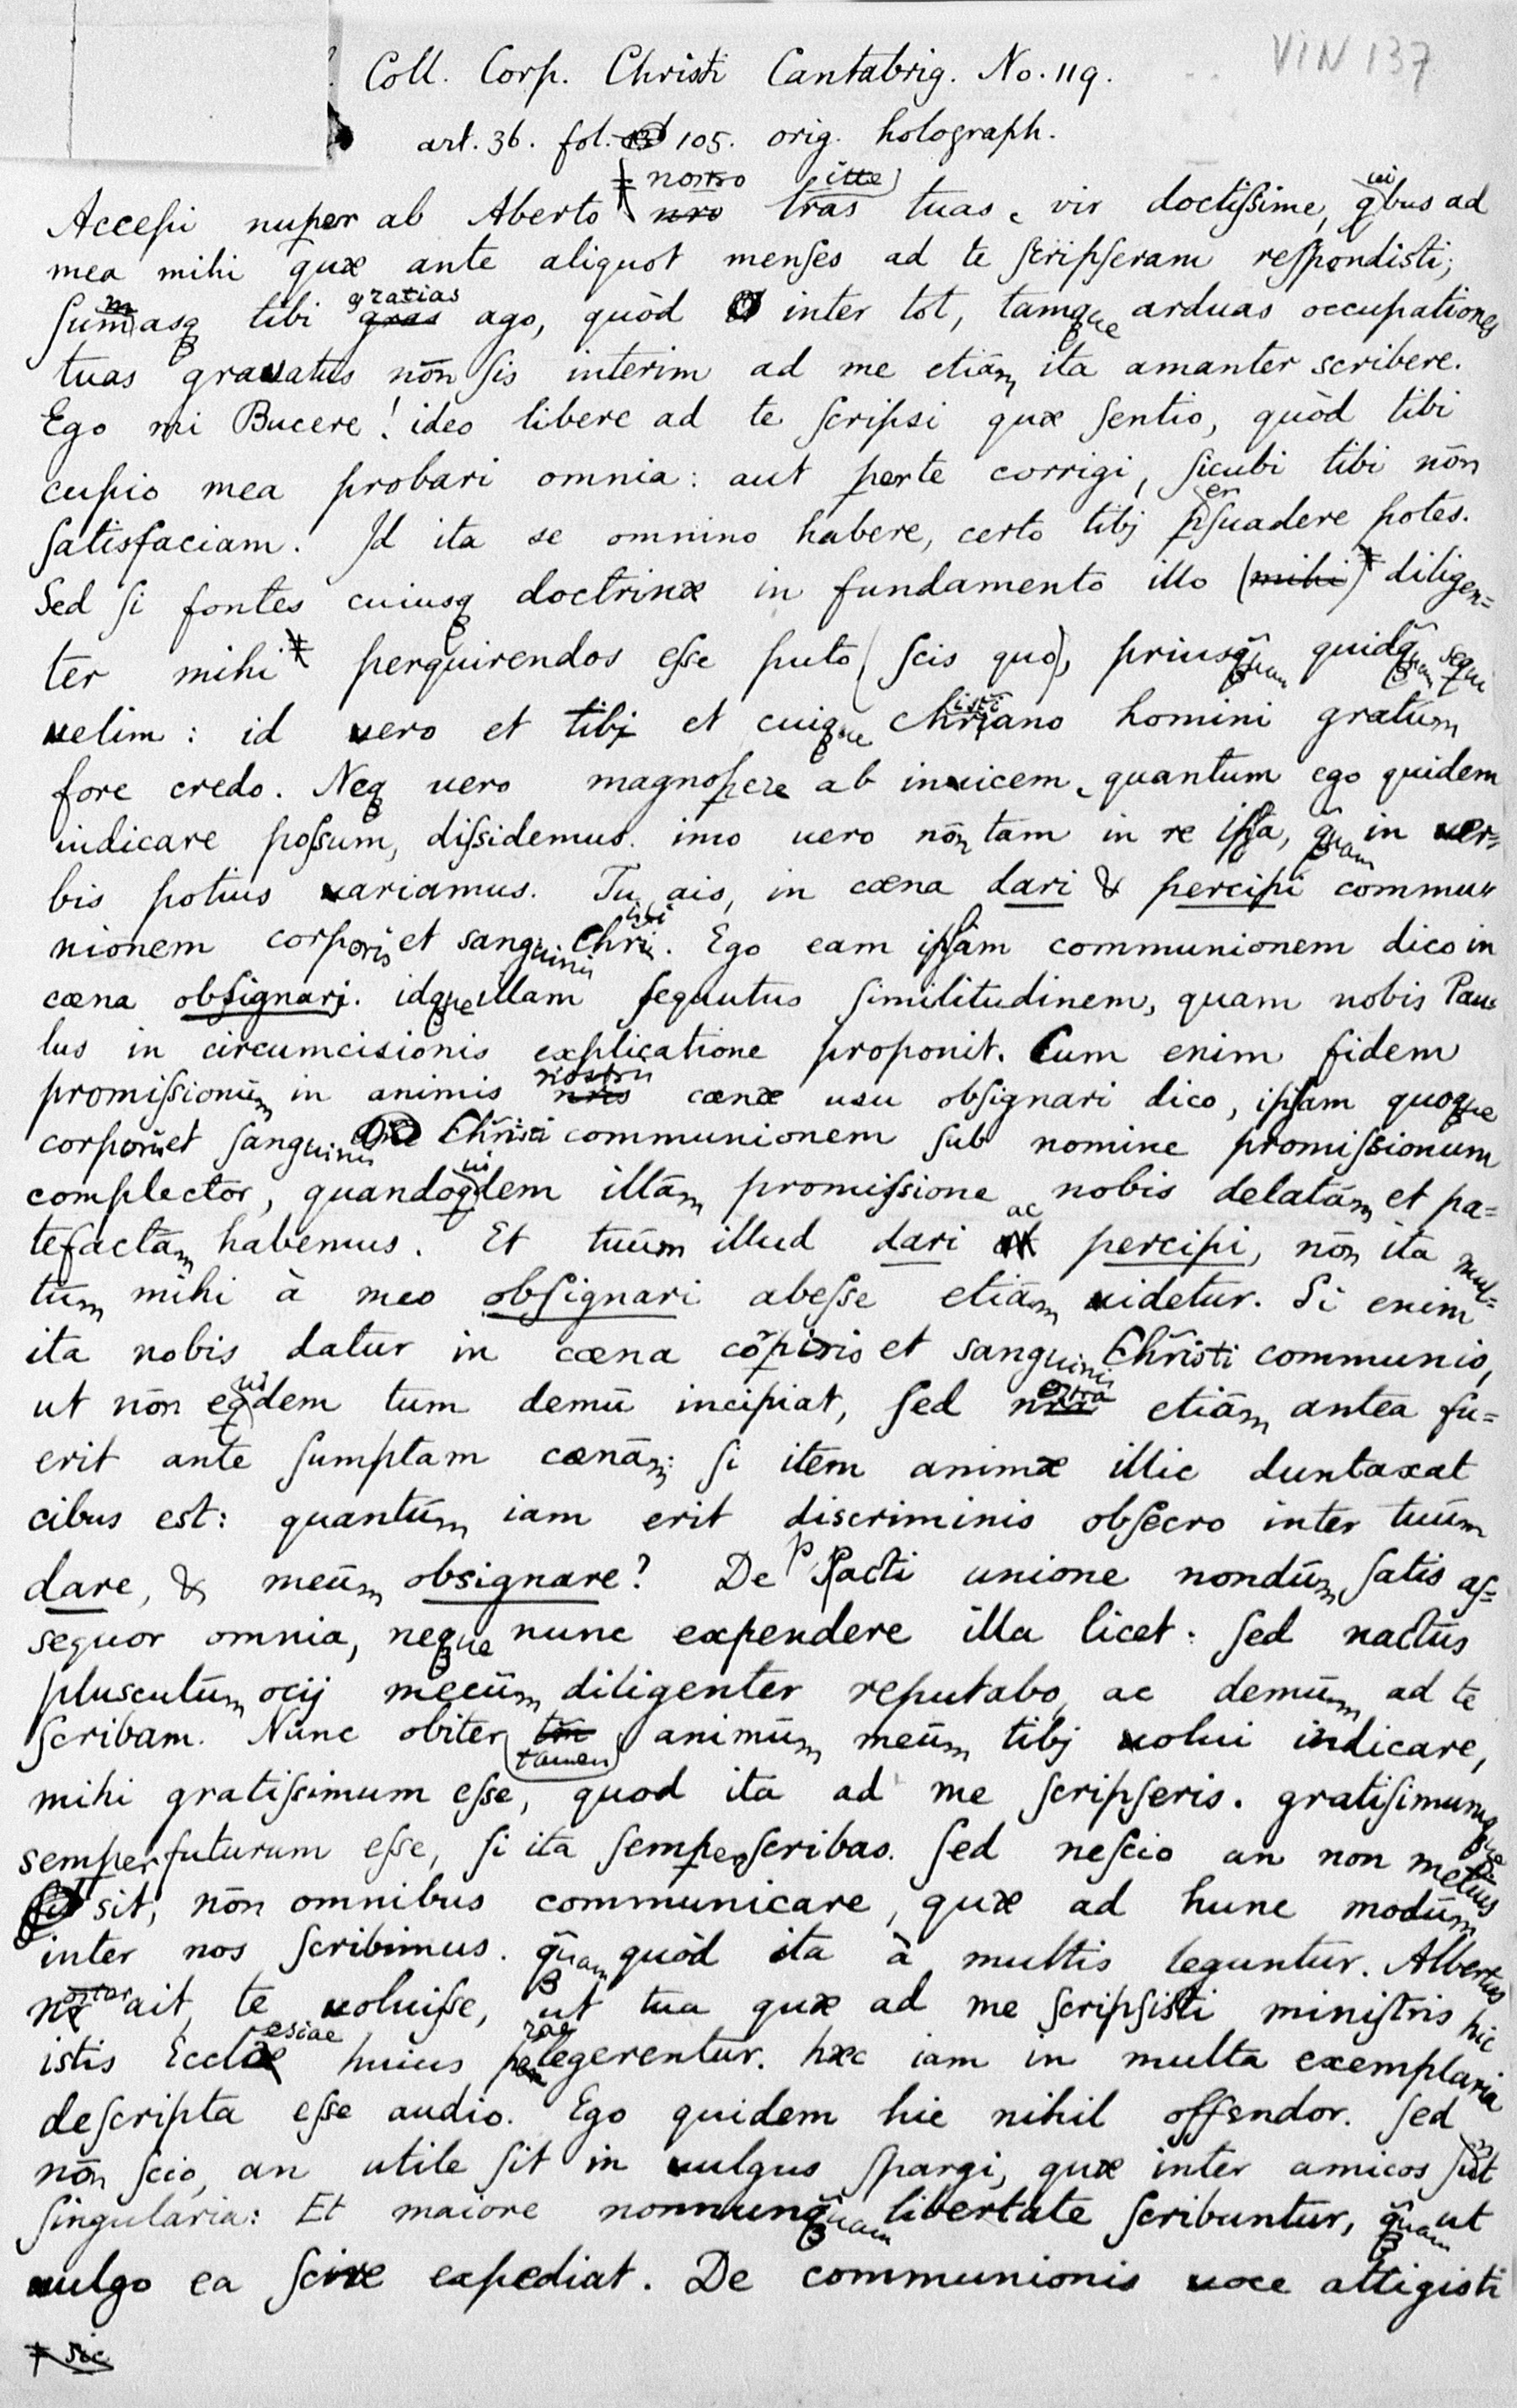 VIN 137
Coll. Corp. Christi Cantabrig. No. 119.
art. 36. fol. 105. orig. holograph.
Accepi nuper ab Aberto nostro lras tuas, vir doctissime, quibus ad
mea mihi quæ ante aliquot menses ad te scripseram respondisti;
summasq tibi gratias ago, quòd inter tot, tamque arduas occupationes
tuas grauatus nōn sis interim ad me etiām ita amanter scribere.
Ego mi Bucere! ideo libere ad te scripsi quæ sentio, quòd tibi
cupio mea probari omnia: aut per te corrigi, sicubi tibi nōn
satisfaciam. Id ita se omnino habere, certo tibj persuadere potes.
Sed si fontes cuiusq doctrinæ in fundamento illo (mihi) diligen=
ter mihi perquirendos esse puto (scis quo), priusquam quidquam sequi
uelim: id uero et tibj et cuique christiano homini gratūm
fore credo. Neq uero magnopere ab inuicem, quantum ego quidem
iudicare possum, dissidemus. imo uero nōn tam in re ipsa, quam in uer=
bis potius uariamus. Tu ais, in cæna dari & percipi commu=
nionem corporis et sanguinis Christi. Ego eam ipsam communionem dico in
cæna obsignarj. idque illam sequutus similitudinem, quam nobis Pau=
lus in circumcisionis explicatione proponit. Cum enim fidem
promissionūm in animis nostris cænæ usu obsignari dico, ipsam quoque
corporis et sanguinis Christi communionem sub nomine promissionum
complector, quandoquidem illām promissione nobis delatām et pa=
tefactām habemus. Et tuūm illud dari ac percipi, nōn ita mul=
tūm mihi à meo obsignari abesse etiām uidetur. Si enim
ita nobis datur in cæna corporis et sanguinis Christi communio,
ut nōn equidem tum demū incipiat, sed nostra etiām antea fu=
erit ante sumptam cænām: si item animæ illic duntaxat
cibus est: quantūm iam erit discriminis obsecro inter tuūm
dare, & meūm obsignare? De pacti unione nondūm satis as=
sequor omnia, neque nunc expendere illa licet: sed nactus
plusculūm ocij mecūm diligenter reputabo, ac demūm ad te
scribam. Nunc obiter tamen animūm meūm tibj uolui indicare,
mihi gratissimum esse, quod ita ad me scripseris. gratissimumque
semper futurum esse, si ita semper scribas. Sed nescio an non melius
sit, nōn omnibus communicare, quæ ad hunc modūm
inter nos scribimus. quam quòd ita à multis leguntur. Albertus
noster ait, te uoluisse, ut tua quæ ad me scripsisti ministris hic
istis Ecclesiae huius praelegerentur. hæc iam in multa exemplaria
descripta esse audio. Ego quidem hic nihil offendor. Sed
nōn scio, an utile sit in uulgus spargi, quæ inter amicos sunt
singularia: Et maiore nonnunquam libertate scribuntur, quam ut
uulgo ea scire expediat. De communionis uoce attigisti
sic